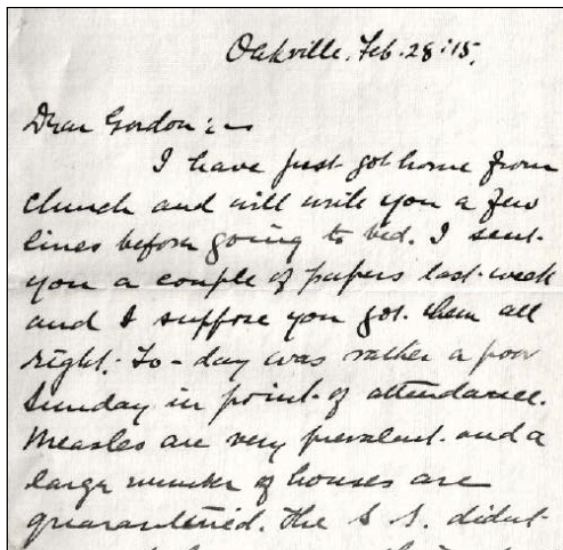 Oakville, Feb. 28. '15.
Dear Gordon :—
I have just got home from
church and will write you a few
lines before going to bed. I sent
you a couple of papers last week
and I suppose you got them all
right. To-day was rather a poor
Sunday in point of attendance.
Measles are very prevalent and a
large number of houses are
quarantined. The S. S. didnt